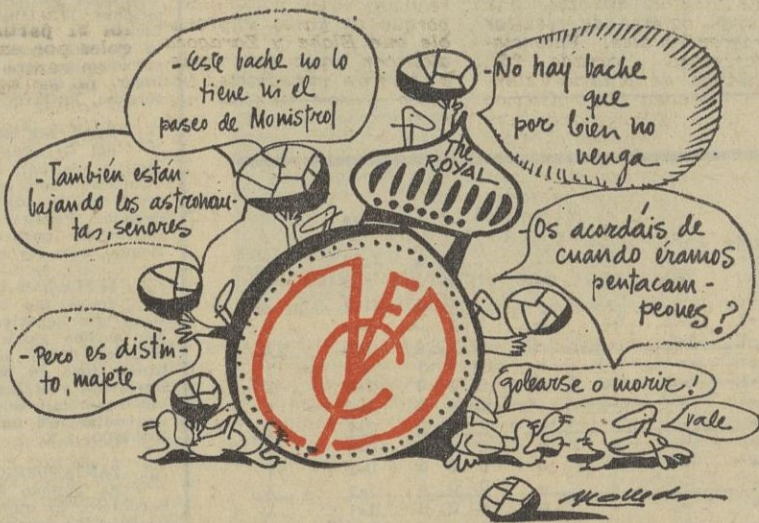 - Este bache no lo
tiene ni el
paseo de Monistrol
- No hay bache
que
por bien no
venga
The
ROYAL
- También están
bajando los astronau-
tas, señores
- Os acordáis de
cuando éramos
pentacam-
peones?
- Pero es distin-
to, majete
golearse o morir!
vale